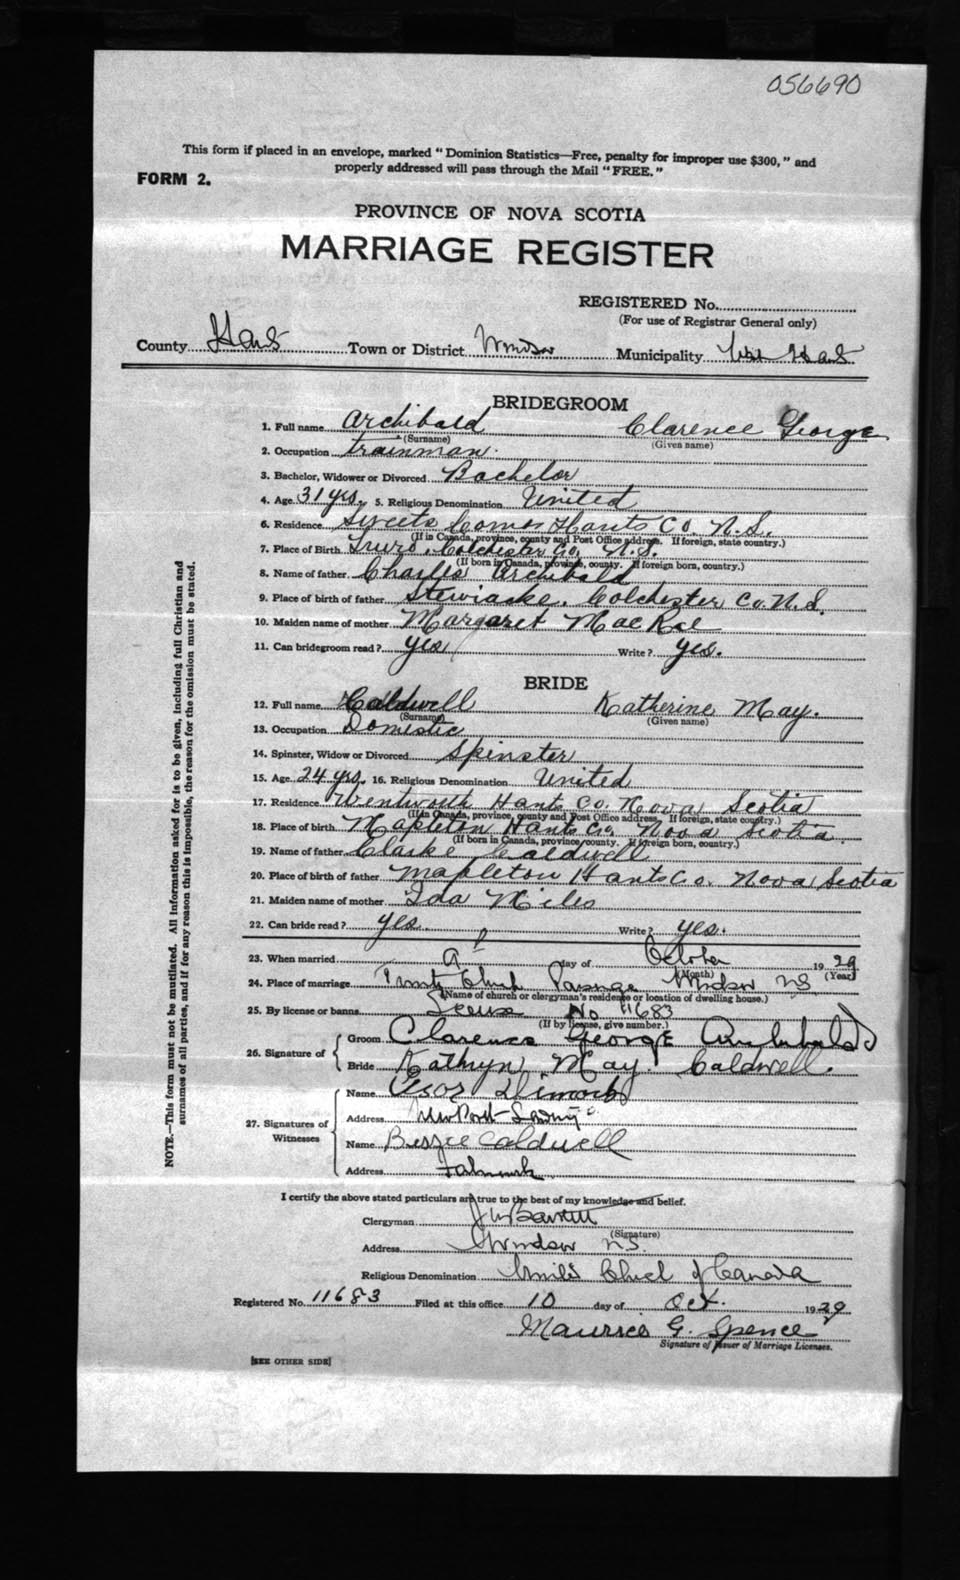 056690
This form if placed in an envelope, marked "Dominion Statistics—Free, penalty for improper use $300," and
properly addressed will pass through the Mail "FREE."
FORM 2.
PROVINCE OF NOVA SCOTIA
MARRIAGE REGISTER
REGISTERED No.
(For use of Registrar General only)
County Hants Town or District Windsor Municipality West Hants
BRIDEGROOM
1. Full name Archibald Clarence George
(Surname) (Given name)
2. Occupation trainman.
3. Bachelor, Widower or Divorced Bachelor
4. Age 31 yrs. 5. Religious Denomination United
6. Residence Sweets Corner Hants Co. N.S.
(If in Canada, province, county and Post Office address. If foreign, state country.)
7. Place of Birth Truro, Colchester Co. N.S.
(If born in Canada, province, county. If foreign born, country.)
8. Name of father Charles Archibald
9. Place of birth of father Stewiacke, Colchester Co. N.S.
10. Maiden name of mother Margaret MacKae
11. Can bridegroom read? yes Write? yes.
BRIDE
12. Full name Caldwell Katherine May.
(Surname) (Given name)
13. Occupation Domestic
14. Spinster, Widow or Divorced Spinster
15. Age 24 yrs. 16. Religious Denomination United
17. Residence Wentworth Hants Co. Nova Scotia
(If in Canada, province, county and Post Office address. If foreign, state country.)
18. Place of birth Mapleton Hants Co. Nova Scotia
(If born in Canada, province, county. If foreign born, country.)
19. Name of father Clarke Caldwell
20. Place of birth of father Mapleton Hants Co. Nova Scotia
21. Maiden name of mother Ida Miles
22. Can bride read? yes Write? yes.
23. When married day of October 1929
(Month) (Year)
24. Place of marriage Trinity Church Parsonage Windsor NS
(Name of church or clergyman's residence or location of dwelling house.)
25. By license or banns License No 11683
(If by license, give number.)
26. Signature of
Groom Clarence George Archibald
Bride Kathryn May Caldwell.
27. Signatures of Witnesses
Name Dimock
Address Newport Landing
Name Bessie Caldwell
Address Falmouth
I certify the above stated particulars are true to the best of my knowledge and belief.
Clergyman
(Signature)
Address Windsor NS.
Religious Denomination United Church of Canada
Registered No. 11683 Filed at this office 10 day of Oct. 1929
Maurice G. Spence
Signature of Issuer of Marriage Licenses.
[SEE OTHER SIDE]
NOTE.—This form must not be mutilated. All information asked for is to be given, including full Christian and
surnames of all parties, and if for any reason this is impossible, the reason for the omission must be stated.